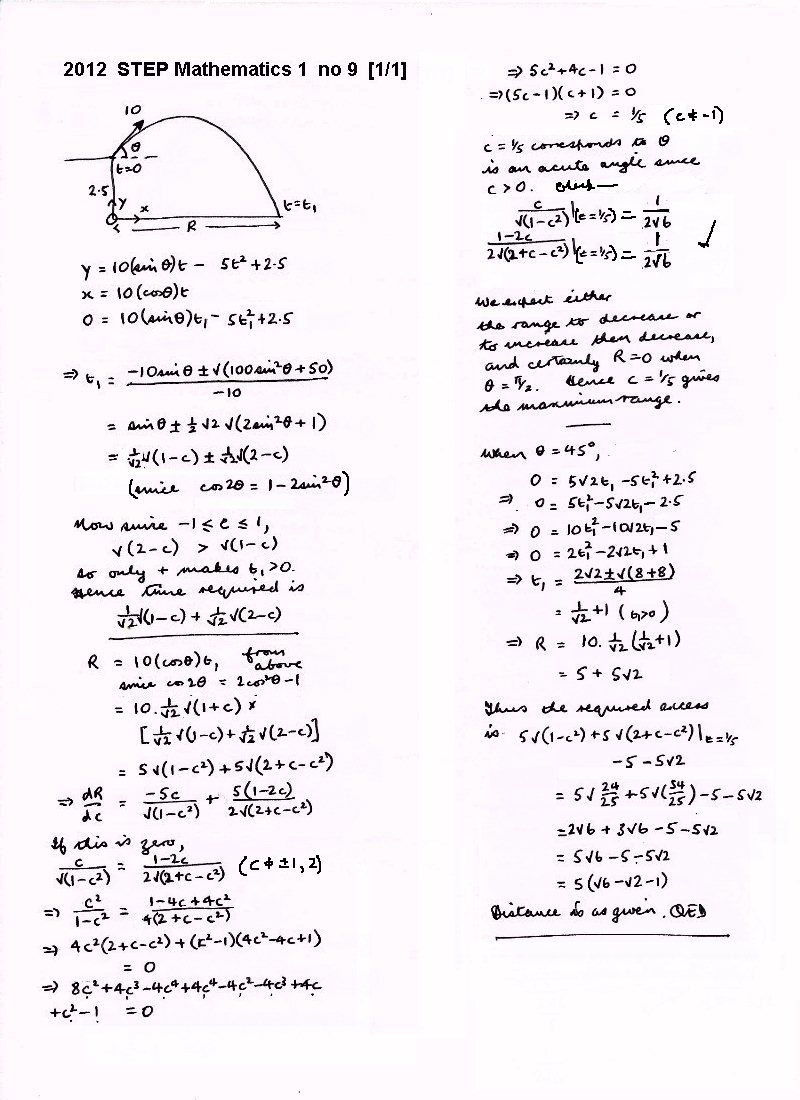 2012 STEP Mathematics 1 no 9 [1/1]
10
θ
t=0
2.5
y
x
O
R
t = t₁
y = 10(sin θ)t − 5t² + 2.5
x = 10(cosθ)t
0 = 10(sinθ)t₁ − 5t₁² + 2.5
⇒ t₁ = (−10sin θ ± √(100sin²θ + 50))/−10
= sinθ ± ½√2 √(2sin²θ + 1)
= 1/√2 √(1−c) ± 1/√2 √(2−c)
(since cos2θ = 1 − 2sin²θ)
Now since −1 ≤ c ≤ 1,
√(2−c) > √(1−c)
so only + makes t₁ > 0.
Hence time required is
1/√2 √(1−c) + 1/√2 √(2−c)
R = 10(cosθ)t₁ from above
since cos 2θ = 2cos²θ−1
= 10. 1/√2 √(1+c) ×
[1/√2 √(1−c) + 1/√2 √(2−c)]
= 5√(1−c²) + 5√(2+c−c²)
⇒ dR/dc = −5c/√(1−c²) + 5(1−2c)/2√(2+c−c²)
If this is zero,
c/√(1−c²) = 1−2c/2√(2+c−c²) (c ≠ ±1, 2)
⇒ c²/1−c² = 1−4c+4c²/4(2+c−c²)
⇒ 4c²(2+c−c²) + (c²−1)(4c²−4c+1)
= 0
⇒ 8c²+4c³−4c⁴+4c⁴−4c²−4c³+4c
+c²−1 = 0
⇒ 5c²+4c−1 = 0
⇒ (5c−1)(c+1) = 0
⇒ c = 1/5 (c ≠ −1)
c = 1/5 corresponds to θ
is an acute angle since
c > 0. Check—
c/√(1−c²)|(c=1/5) = 1/2√6
1−2c/2√(2+c−c²)|(c=1/5) = 1/2√6 ✓
We expect either
the range to decrease or
to increase then decrease,
and certainly R=0 when
θ = π/2. Hence c = 1/5 gives
the maximum range.
When θ = 45°,
0 = 5√2t₁ − 5t₁² + 2.5
⇒ 0 = 5t₁² − 5√2t₁ − 2.5
⇒ 0 = 10t₁² − 10√2t₁ − 5
⇒ 0 = 2t₁² − 2√2t₁ + 1
⇒ t₁ = 2√2 ± √(8+8)/4
= 1/√2 + 1 (t₁>0)
⇒ R = 10. 1/√2 (1/√2 + 1)
= 5 + 5√2
Thus the required excess
is 5√(1−c²) + 5√(2+c−c²)|c=1/5
− 5 − 5√2
= 5√24/25 + 5√(54/25) − 5 − 5√2
= 2√6 + 3√6 − 5 − 5√2
= 5√6 − 5 − 5√2
= 5(√6 − √2 − 1)
Distance is as given. QED